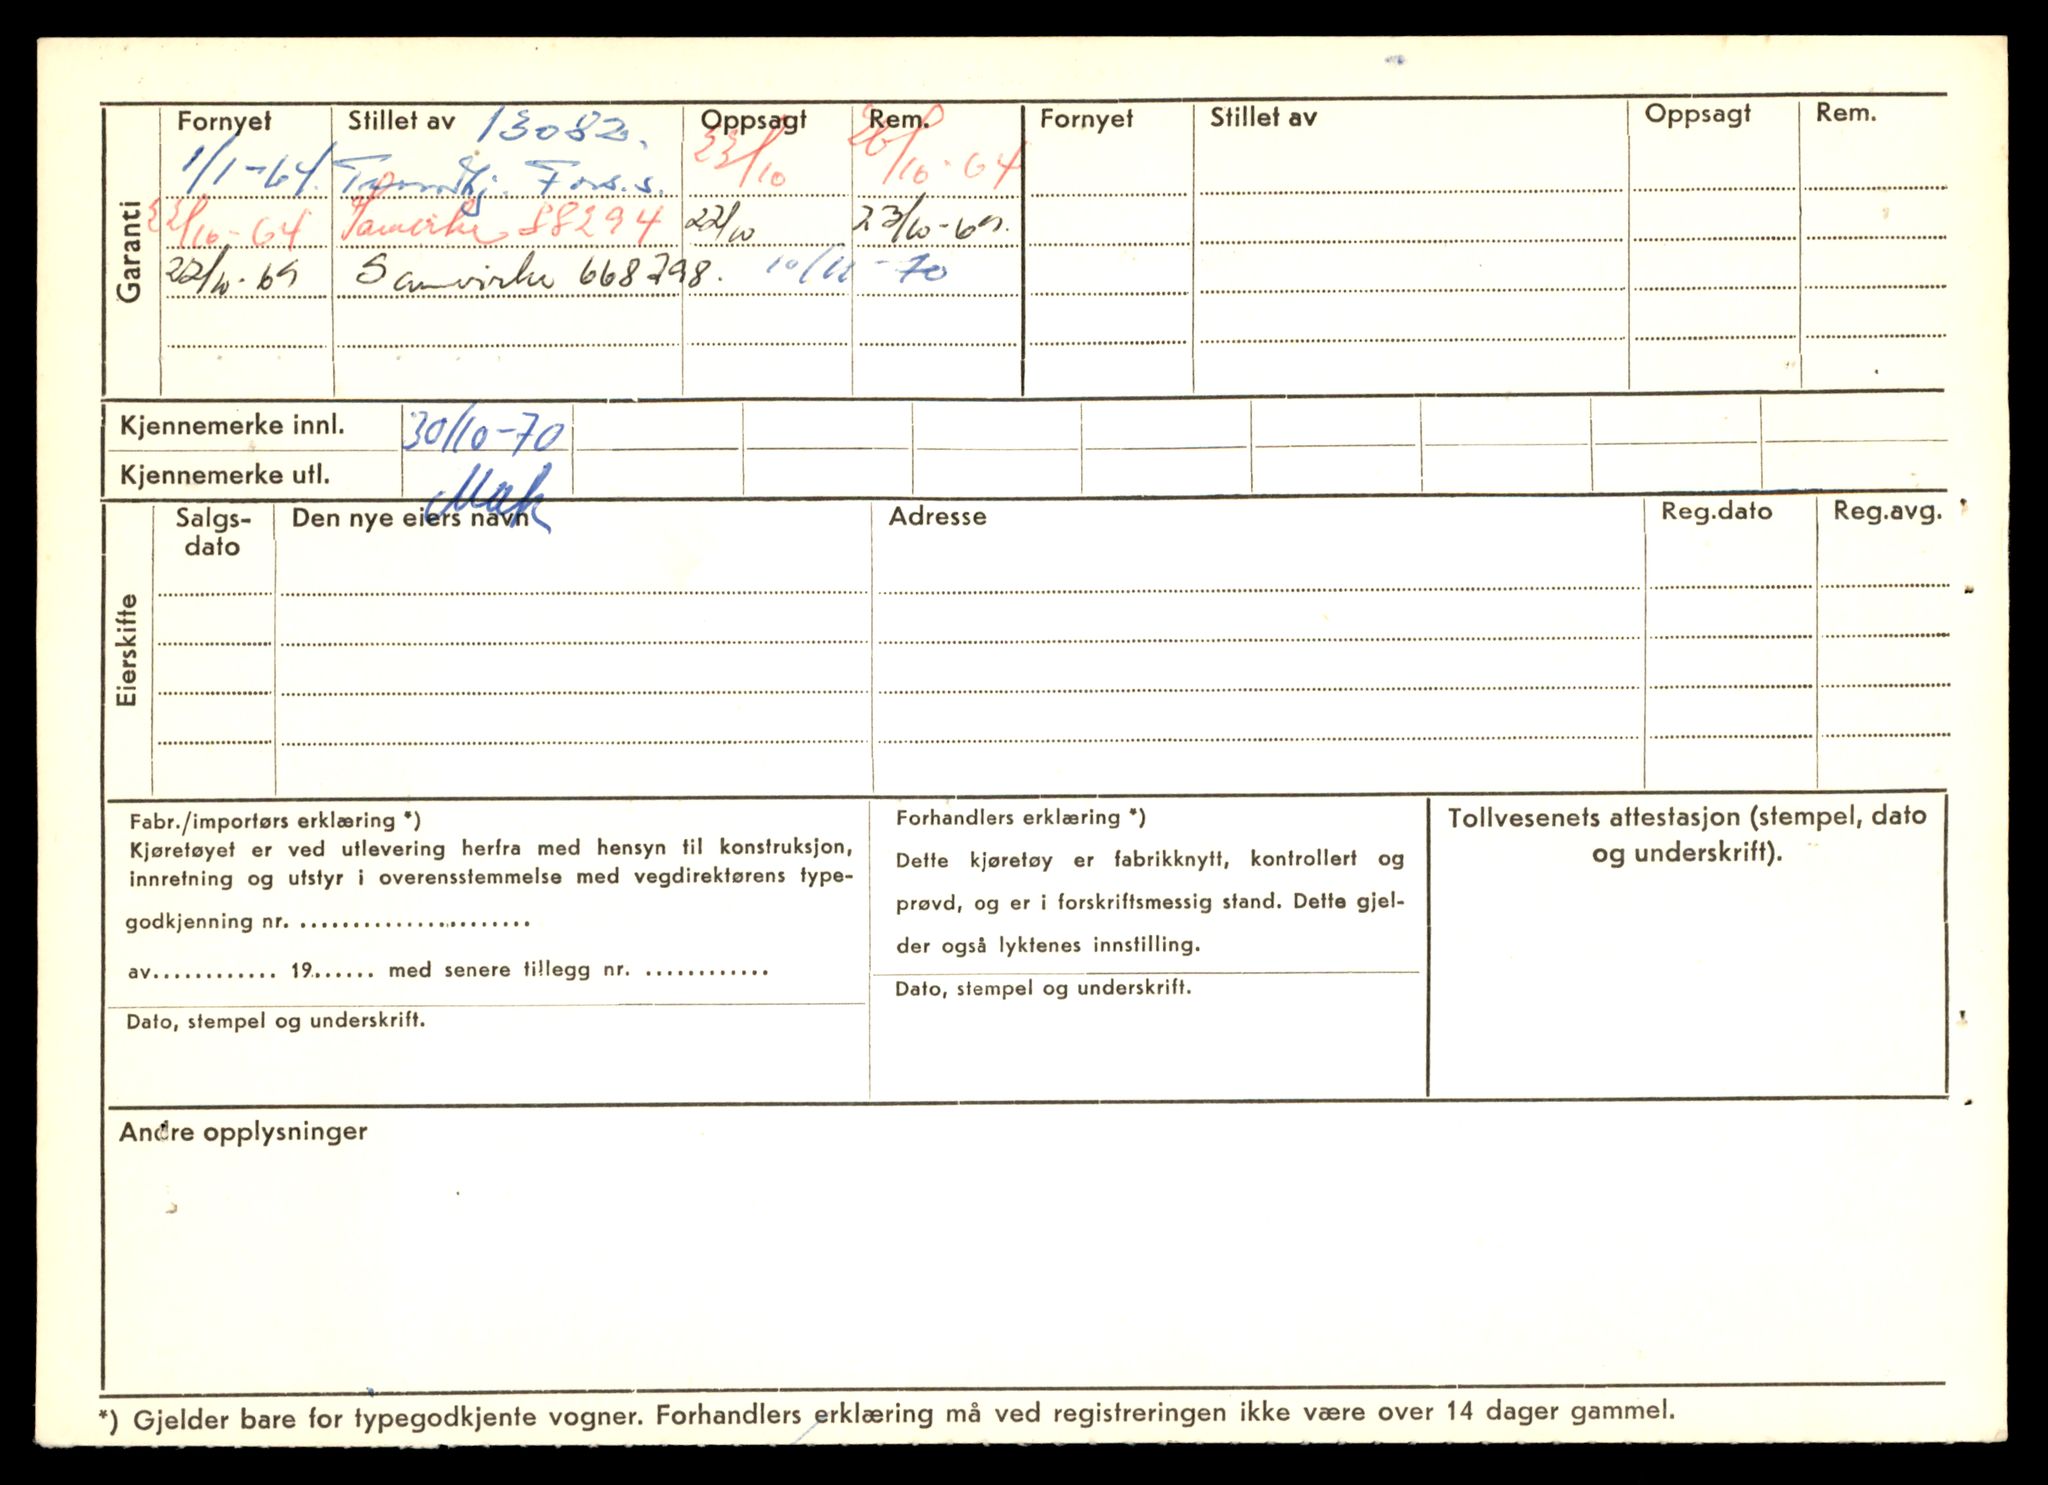 Garanti
Fornyet Stillet av 13082. Oppsagt Rem. Fornyet Stillet av Oppsagt Rem.
1/1-64. Fors.s. 23/10 26/10-64
22/10-64 Samvirke 88294 22/10 23/10-69.
22/10-69 Samvirke 668798. 10/11-70
Kjennemerke innl. 30/10-70
Kjennemerke utl.
Eierskifte
Salgs-
dato Den nye eiers navn Adresse Reg.dato Reg.avg.
Fabr./importørs erklæring *)
Kjøretøyet er ved utlevering herfra med hensyn til konstruksjon,
innretning og utstyr i overensstemmelse med vegdirektørens type-
godkjenning nr. ......................
av............ 19...... med senere tillegg nr. ............
Dato, stempel og underskrift.
Forhandlers erklæring *)
Dette kjøretøy er fabrikknytt, kontrollert og
prøvd, og er i forskriftsmessig stand. Dette gjel-
der også lyktenes innstilling.
Dato, stempel og underskrift.
Tollvesenets attestasjon (stempel, dato
og underskrift).
Andre opplysninger
*) Gjelder bare for typegodkjente vogner. Forhandlers erklæring må ved registreringen ikke være over 14 dager gammel.